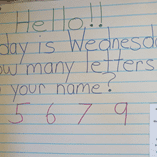 Hello!!
day is Wednesd
ow many letters
your name?
5 6 7 9